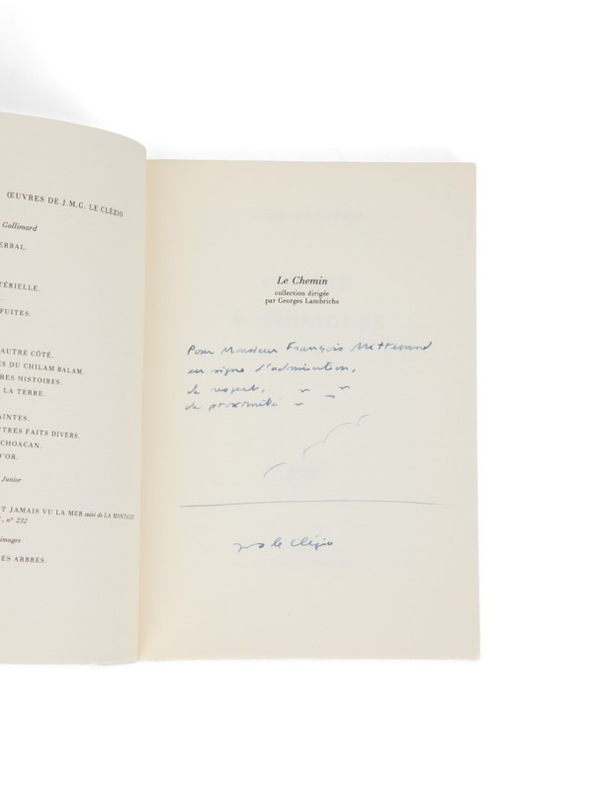 ŒUVRES DE J.M.G. LE CLÉZIO
Gallimard
ERBAL.
TÉRIELLE.
FUITES.
AUTRE CÔTÉ.
ES DU CHILAM BALAM.
RES HISTOIRES.
LA TERRE.
AINTES.
UTRES FAITS DIVERS.
CHOACAN.
D'OR.
Junior
T JAMAIS VU LA MER suivi de LA MONTAGNE
, n° 232
images
ES ARBRES.
Le Chemin
collection dirigée
par Georges Lambrichs
Pour Monsieur François Mitterrand
en signe d'admiration,
de respect,
de proximité
le Clézio